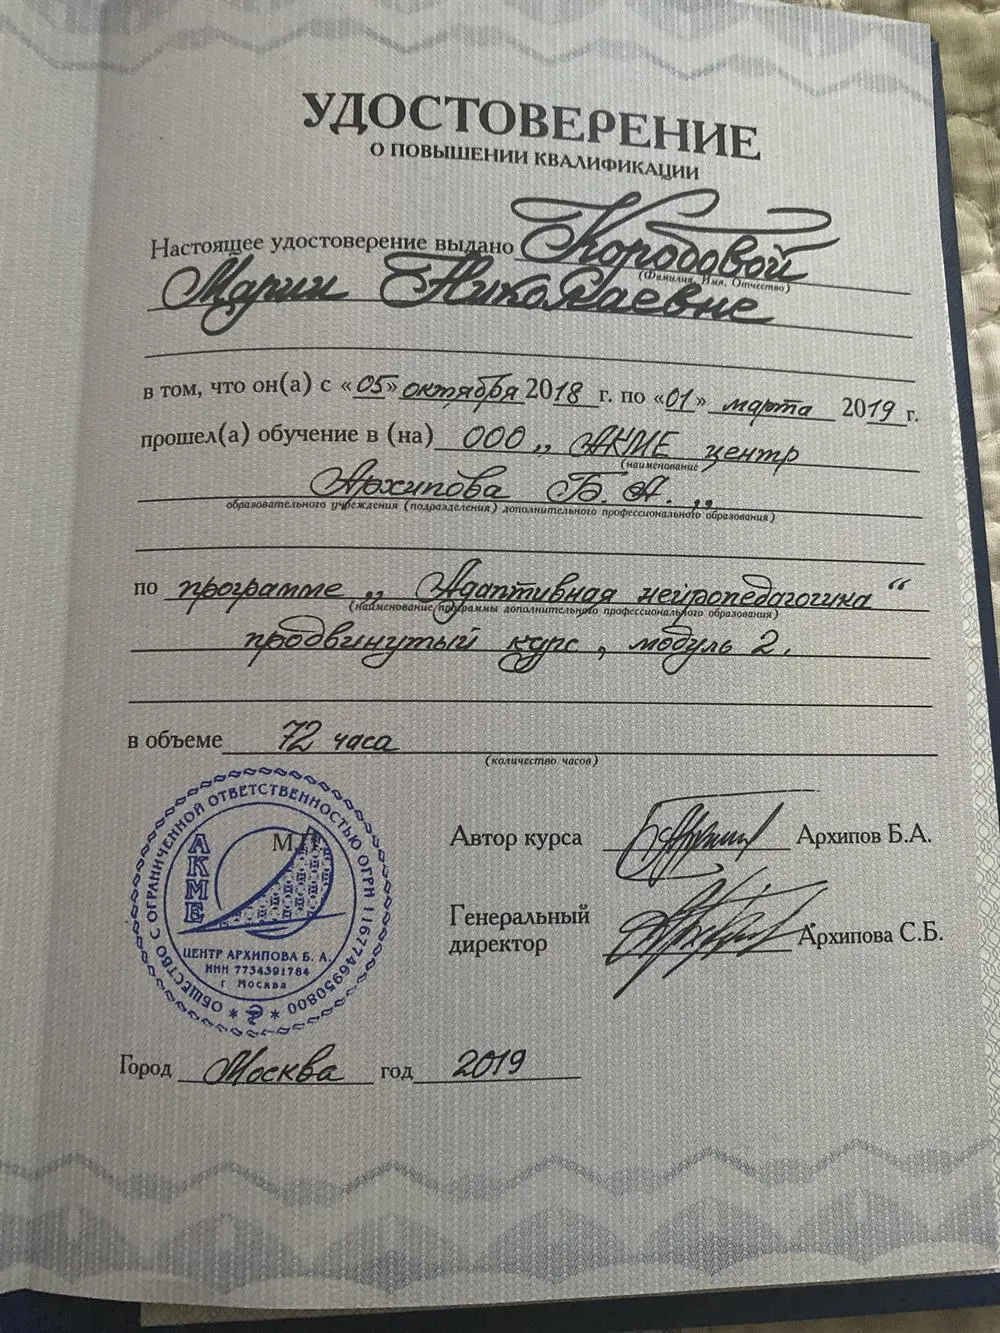 УДОСТОВЕРЕНИЕ
О ПОВЫШЕНИИ КВАЛИФИКАЦИИ
Настоящее удостоверение выдано Коробовой
(Фамилия, Имя, Отчество)
Марии Николаевне
в том, что он(а) с «05» октября 2018 г. по «01» марта 2019 г.
прошел(а) обучение в (на) ООО „АКМЕ центр
(наименование
Архипова Б.А.„
образовательного учреждения (подразделения) дополнительного профессионального образования)
по программе „Адаптивная нейропедагогика“
(наименование программы дополнительного профессионального образования)
продвинутый курс, модуль 2.
в объеме 72 часа
(количество часов)
Автор курса Архипов Б.А.
Генеральный
директор Архипова С.Б.
М.П.
ОБЩЕСТВО С ОГРАНИЧЕННОЙ ОТВЕТСТВЕННОСТЬЮ ОГРН 1167746950800
АКМЕ
ЦЕНТР АРХИПОВА Б. А.
ИНН 7734391784
г Москва
Город Москва год 2019